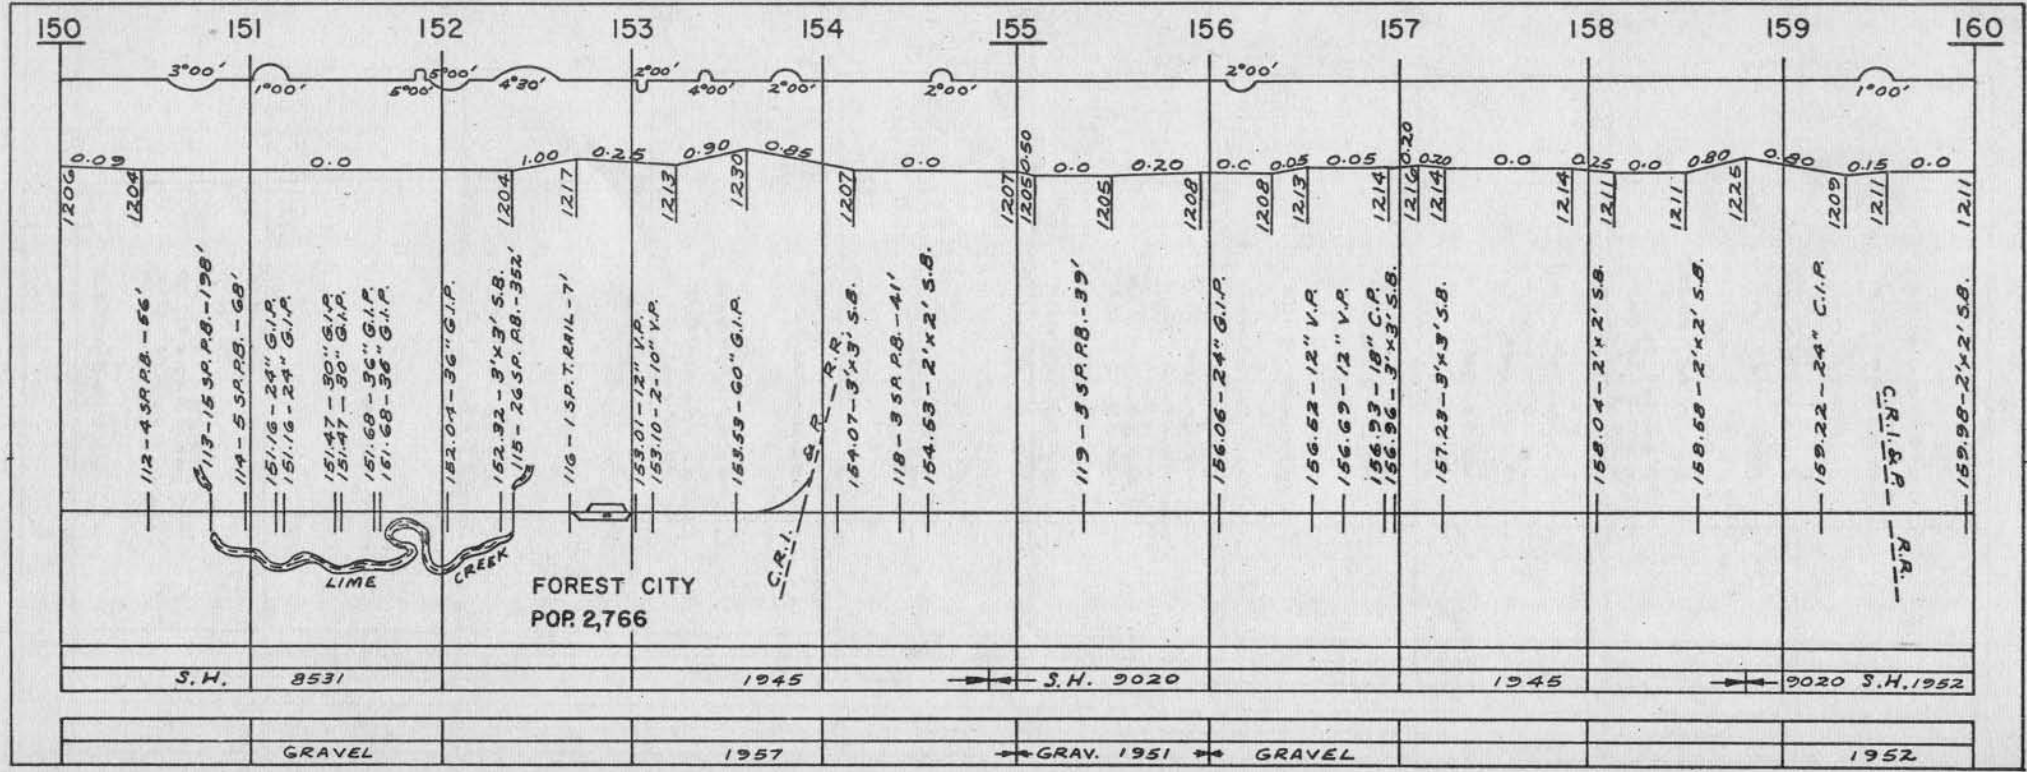 150 151 152 153 154 155 156 157 158 159 160
3°00' 1°00' 5°00' 5°00' 4°30' 2°00' 4°00' 2°00' 2°00' 2°00' 1°00'
0.09 0.0 1.00 0.25 0.90 0.85 0.0 0.50 0.0 0.20 0.0 0.05 0.05 0.20 0.20 0.0 0.25 0.0 0.80 0.80 0.15 0.0
1206 1204 1204 1217 1213 1230 1207 1207 1205 1205 1208 1208 1213 1214 1216 1214 1214 1211 1211 1225 1209 1211 1211
112-4 SP. P.B.-56'
113-15 SP. P.B.-198'
114-5 SP. P.B.-68'
151.16-24" G.I.P.
151.16-24" G.I.P.
151.47-30" G.I.P.
151.47-30" G.I.P.
151.68-36" G.I.P.
151.68-36" G.I.P.
152.04-36" G.I.P.
152.32-3'x3' S.B.
115-26 SP. P.B.-352'
116-1 SP. T. RAIL-7'
153.01-12" V.P.
153.10-2-10" V.P.
153.53-60" G.I.P.
154.07-3'x3' S.B.
118-3 SP. P.B.-41'
154.53-2'x2' S.B.
119-3 SP. P.B.-39'
156.06-24" G.I.P.
156.52-12" V.P.
156.69-12" V.P.
156.93-18" C.P.
156.96-3'x3' S.B.
157.23-3'x3' S.B.
158.04-2'x2' S.B.
158.58-2'x2' S.B.
159.22-24" C.I.P.
159.98-2'x2' S.B.
C.R.I. & P. R.R.
C.R.I. & P. R.R.
LIME CREEK
FOREST CITY
POP. 2,766
S.H. 8531 1945 S.H. 9020 1945 9020 S.H. 1952
GRAVEL 1957 GRAV. 1951 GRAVEL 1952